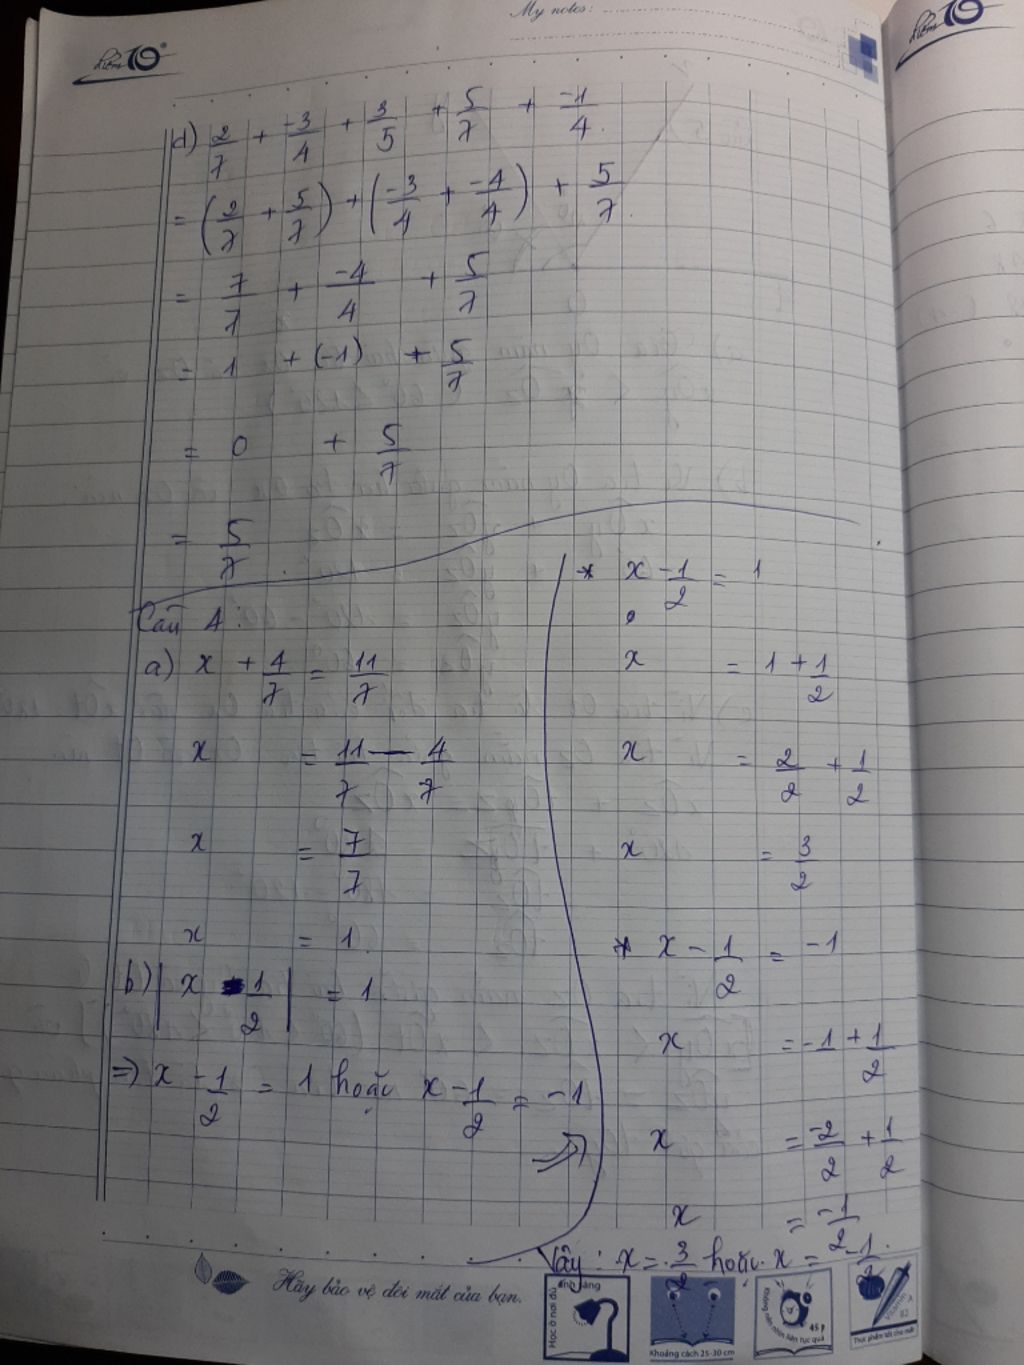 My notes:
điểm 10
điểm 10
d) 2/7 + -3/4 + 3/5 + 5/7 + -1/4
= (2/7 + 5/7) + (-3/4 + -4/4) + 5/7
= 7/7 + -4/4 + 5/7
= 1 + (-1) + 5/7
= 0 + 5/7
= 5/7
Câu 4:
a) x + 4/7 = 11/7
x = 11/7 - 4/7
x = 7/7
x = 1
b) |x - 1/2| = 1
=> x - 1/2 = 1 hoặc x - 1/2 = -1
* x - 1/2 = 1
x = 1 + 1/2
x = 2/2 + 1/2
x = 3/2
* x - 1/2 = -1
x = -1 + 1/2
x = -2/2 + 1/2
x = -1/2
Vậy: x = 3/2 hoặc x = -1/2
Hãy bảo vệ đôi mắt của bạn.
Học ở nơi đủ ánh sáng
Khoảng cách 25-30 cm
Không nên nhìn liên tục quá
45 p
Thực phẩm tốt cho mắt